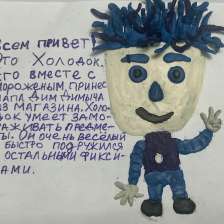 Всем привет!
Это Холодок.
Его вместе с
мороженым, принес
папа Дим Димыча
из магазина. Холо-
док умеет замо-
раживать предме-
ты. Он очень весёлый
и быстро подружился
с остальными фикси-
ками.